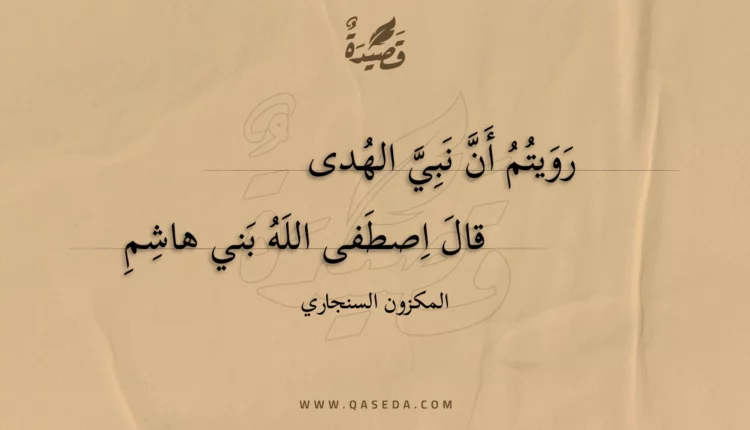 قَصِيدَةٌ
رَوَيتُمُ أَنَّ نَبِيَّ الهُدى
قالَ اِصطَفى اللَهُ بَني هاشِمِ
المكزون السنجاري
WWW.QASEDA.COM